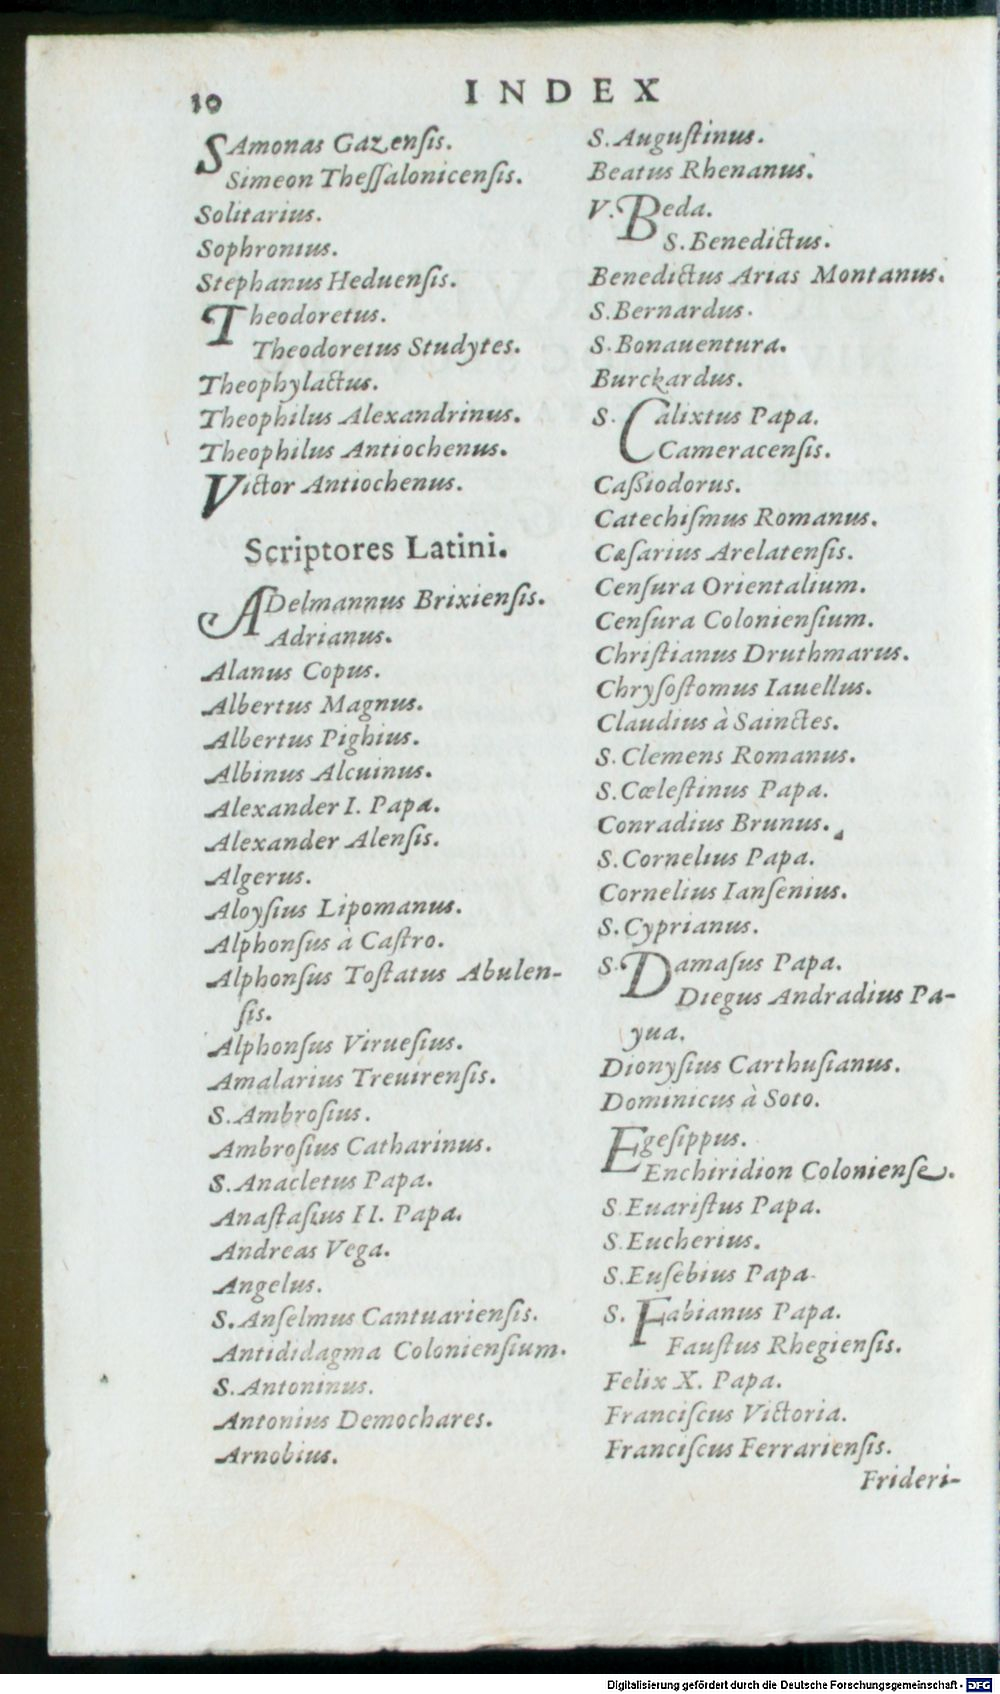 10
INDEX
SAmonas Gazensis.
Simeon Thessalonicensis.
Solitarius.
Sophronius.
Stephanus Heduensis.
Theodoretus.
Theodoretus Studytes.
Theophylactus.
Theophilus Alexandrinus.
Theophilus Antiochenus.
Victor Antiochenus.
Scriptores Latini.
ADelmannus Brixiensis.
Adrianus.
Alanus Copus.
Albertus Magnus.
Albertus Pighius.
Albinus Alcuinus.
Alexander I. Papa.
Alexander Alensis.
Algerus.
Aloysius Lipomanus.
Alphonsus à Castro.
Alphonsus Tostatus Abulen-
sis.
Alphonsus Viruesius.
Amalarius Treuirensis.
S. Ambrosius.
Ambrosius Catharinus.
S. Anacletus Papa.
Anastasius II. Papa.
Andreas Vega.
Angelus.
S. Anselmus Cantuariensis.
Antididagma Coloniensium.
S. Antoninus.
Antonius Demochares.
Arnobius.
S. Augustinus.
Beatus Rhenanus.
V. Beda.
S. Benedictus.
Benedictus Arias Montanus.
S. Bernardus.
S. Bonauentura.
Burckardus.
S. Calixtus Papa.
Cameracensis.
Cassiodorus.
Catechismus Romanus.
Cæsarius Arelatensis.
Censura Orientalium.
Censura Coloniensium.
Christianus Druthmarus.
Chrysostomus Iauellus.
Claudius à Sainctes.
S. Clemens Romanus.
S. Cœlestinus Papa.
Conradius Brunus.
S. Cornelius Papa.
Cornelius Iansenius.
S. Cyprianus.
S. Damasus Papa.
Diegus Andradius Pa-
yua.
Dionysius Carthusianus.
Dominicus à Soto.
Egesippus.
Enchiridion Coloniense.
S. Euaristus Papa.
S. Eucherius.
S. Eusebius Papa.
S. Fabianus Papa.
Faustus Rhegiensis.
Felix X. Papa.
Franciscus Victoria.
Franciscus Ferrariensis.
Frideri-
Digitalisierung gefördert durch die Deutsche Forschungsgemeinschaft - DFG